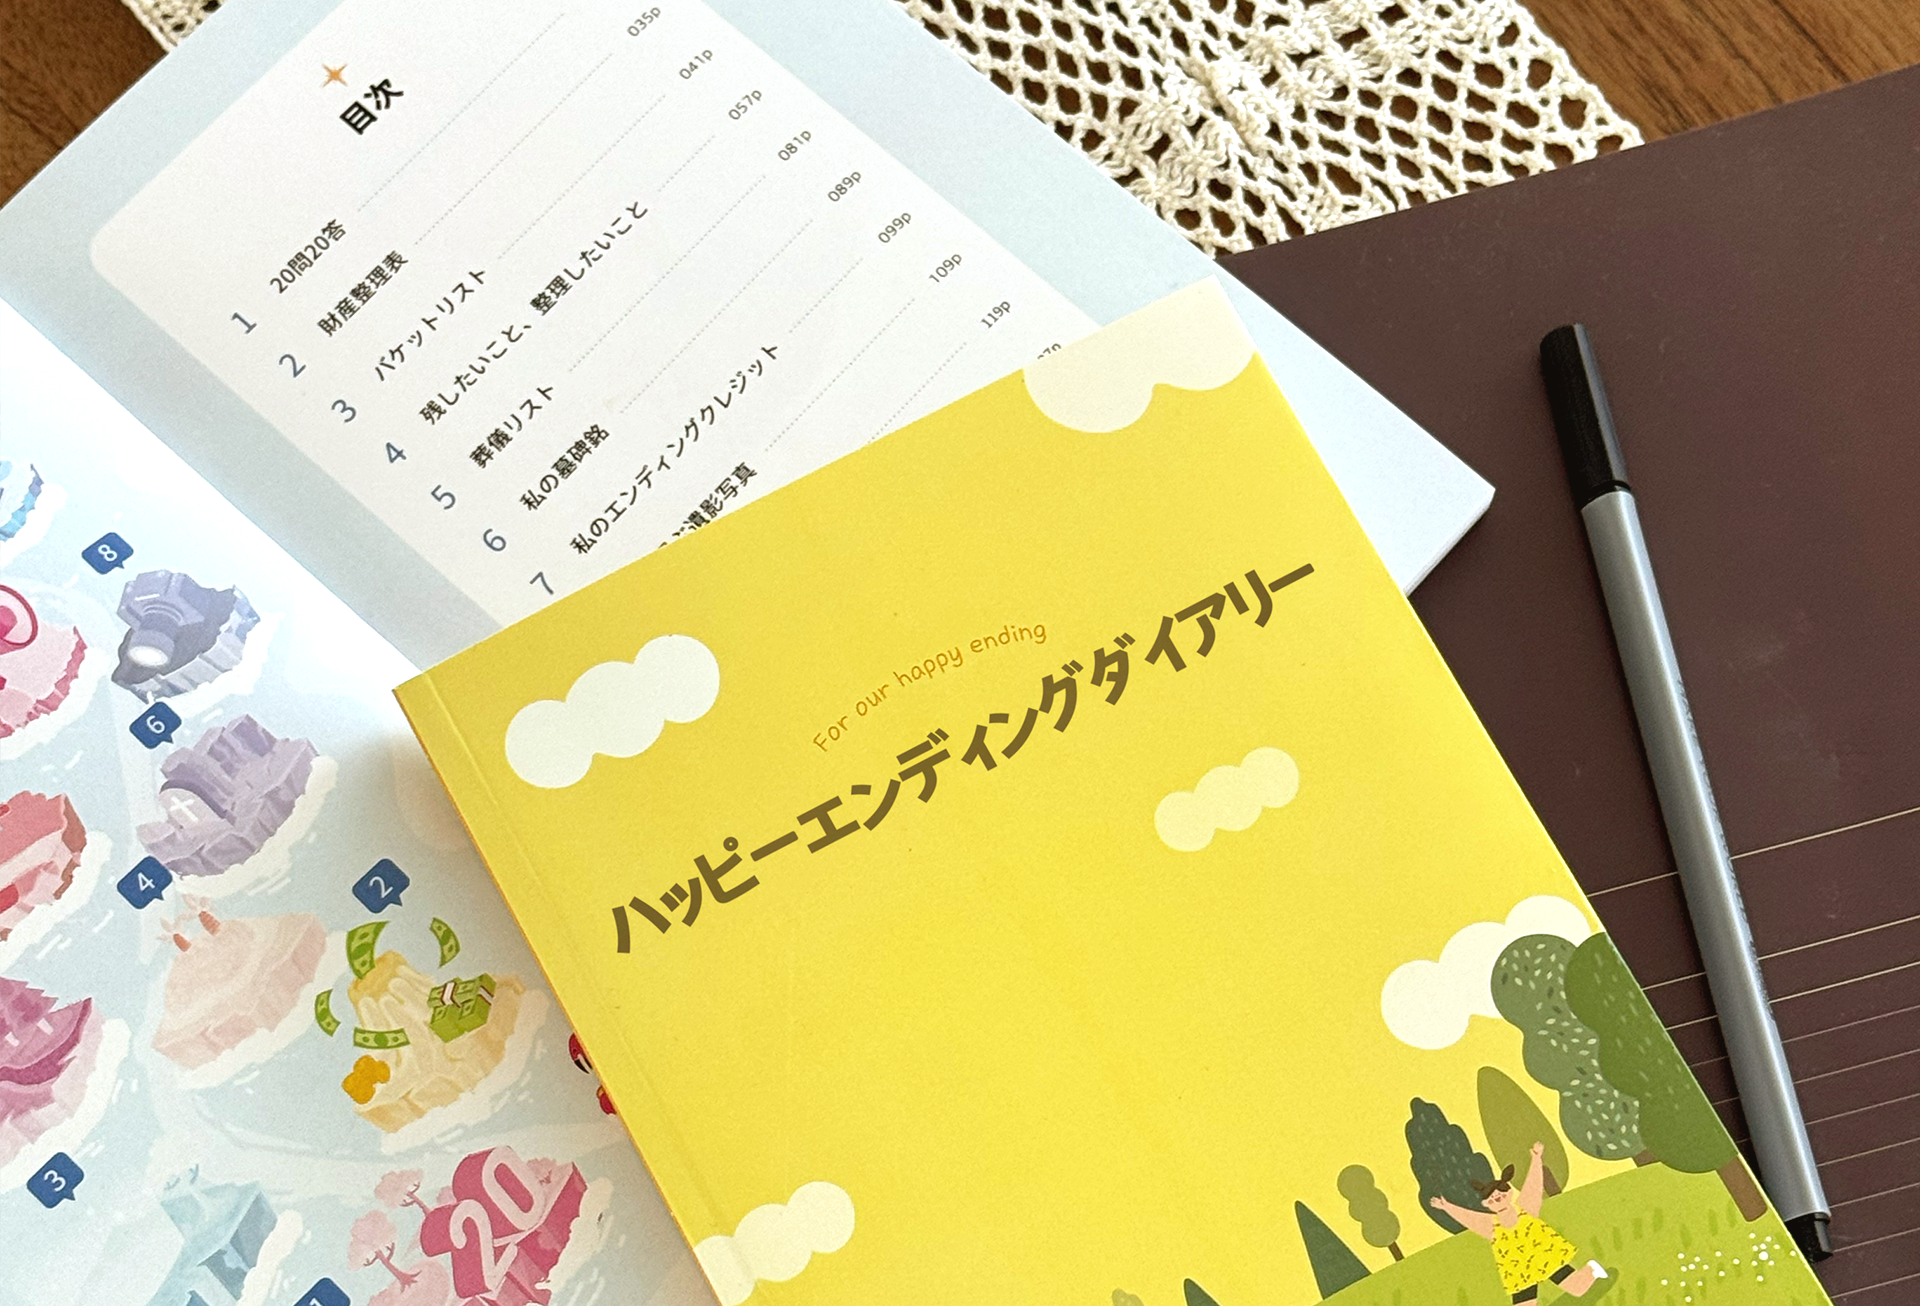 目次
1 20問20答 035p
2 財産整理表 041p
3 バケットリスト 057p
4 残したいこと、整理したいこと 081p
5 葬儀リスト 089p
6 私の墓碑銘 099p
7 私のエンディングクレジット 109p
遺影写真 119p
For our happy ending
ハッピーエンディングダイアリー
8
6
4
2
3
20
1